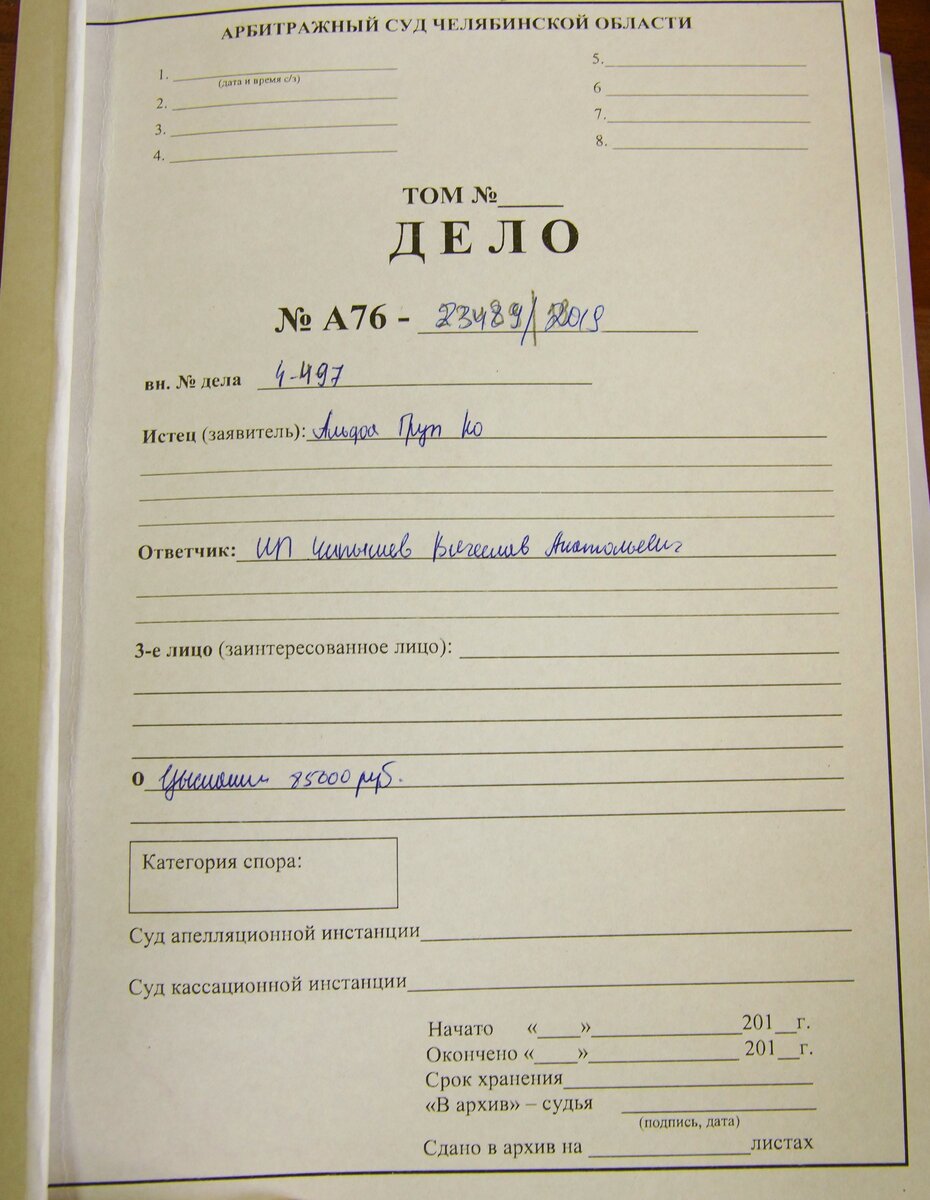 АРБИТРАЖНЫЙ СУД ЧЕЛЯБИНСКОЙ ОБЛАСТИ
1.
(дата и время с/з)
2.
3.
4.
5.
6
7.
8.
ТОМ №____
ДЕЛО
№ А76 - 23489/2019
вн. № дела 4-497
Истец (заявитель): Альфа Груп Ко
Ответчик: ИП Вячеслав Анатольевич
3-е лицо (заинтересованное лицо):
О 85000 руб.
Категория спора:
Суд апелляционной инстанции
Суд кассационной инстанции
Начато «____»______________201__г.
Окончено «____»______________ 201__г.
Срок хранения
«В архив» – судья
(подпись, дата)
Сдано в архив на _______________листах